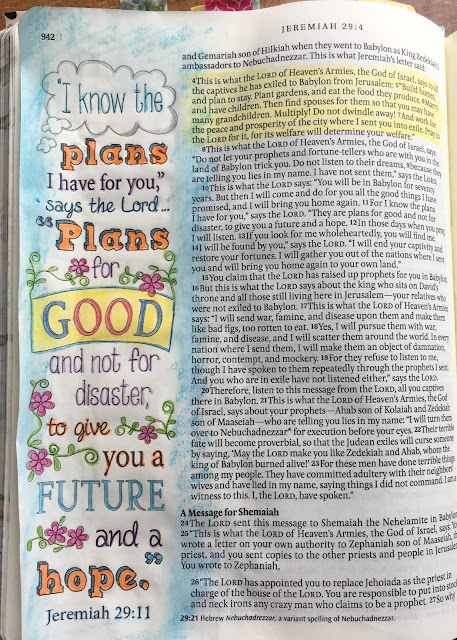 942
JEREMIAH 29:4
"I know the
plans
I have for you,"
says the Lord...
"Plans
for
GOOD
and not for
disaster,
to give
you a
FUTURE
and a
hope."
Jeremiah 29:11
and Gemariah son of Hilkiah when they went to Babylon as King Zedekiah's
ambassadors to Nebuchadnezzar. This is what Jeremiah's letter said:
4This is what the LORD of Heaven's Armies, the God of Israel, says to all
the captives he has exiled to Babylon from Jerusalem: 5"Build homes,
and plan to stay. Plant gardens, and eat the food they produce. 6Marry
and have children. Then find spouses for them so that you may have
many grandchildren. Multiply! Do not dwindle away! 7And work for
the peace and prosperity of the city where I sent you into exile. Pray to
the LORD for it, for its welfare will determine your welfare."
8This is what the LORD of Heaven's Armies, the God of Israel, says:
"Do not let your prophets and fortune-tellers who are with you in the
land of Babylon trick you. Do not listen to their dreams, 9because they
are telling you lies in my name. I have not sent them," says the LORD.
10This is what the LORD says: "You will be in Babylon for seventy
years. But then I will come and do for you all the good things I have
promised, and I will bring you home again. 11For I know the plans
I have for you," says the LORD. "They are plans for good and not for
disaster, to give you a future and a hope. 12In those days when you pray,
I will listen. 13If you look for me wholeheartedly, you will find me.
14I will be found by you," says the LORD. "I will end your captivity and
restore your fortunes. I will gather you out of the nations where I sent
you and will bring you home again to your own land."
15You claim that the LORD has raised up prophets for you in Babylon.
16But this is what the LORD says about the king who sits on David's
throne and all those still living here in Jerusalem—your relatives who
were not exiled to Babylon. 17This is what the LORD of Heaven's Armies
says: "I will send war, famine, and disease upon them and make them
like bad figs, too rotten to eat. 18Yes, I will pursue them with war,
famine, and disease, and I will scatter them around the world. In every
nation where I send them, I will make them an object of damnation,
horror, contempt, and mockery. 19For they refuse to listen to me,
though I have spoken to them repeatedly through the prophets I sent.
And you who are in exile have not listened either," says the LORD.
20Therefore, listen to this message from the LORD, all you captives
there in Babylon. 21This is what the LORD of Heaven's Armies, the God
of Israel, says about your prophets—Ahab son of Kolaiah and Zedekiah
son of Maaseiah—who are telling you lies in my name: "I will turn them
over to Nebuchadnezzar* for execution before your eyes. 22Their terrible
fate will become proverbial, so that the Judean exiles will curse someone
by saying, 'May the LORD make you like Zedekiah and Ahab, whom the
king of Babylon burned alive!' 23For these men have done terrible things
among my people. They have committed adultery with their neighbors'
wives and have lied in my name, saying things I did not command. I am a
witness to this. I, the LORD, have spoken."
A Message for Shemaiah
24The LORD sent this message to Shemaiah the Nehelamite in Babylon:
25"This is what the LORD of Heaven's Armies, the God of Israel, says: You
wrote a letter on your own authority to Zephaniah son of Maaseiah, the
priest, and you sent copies to the other priests and people in Jerusalem.
You wrote to Zephaniah,
26"The LORD has appointed you to replace Jehoiada as the priest in
charge of the house of the LORD. You are responsible to put into stocks
and neck irons any crazy man who claims to be a prophet. 27So why
29:21 Hebrew Nebuchadrezzar, a variant spelling of Nebuchadnezzar.